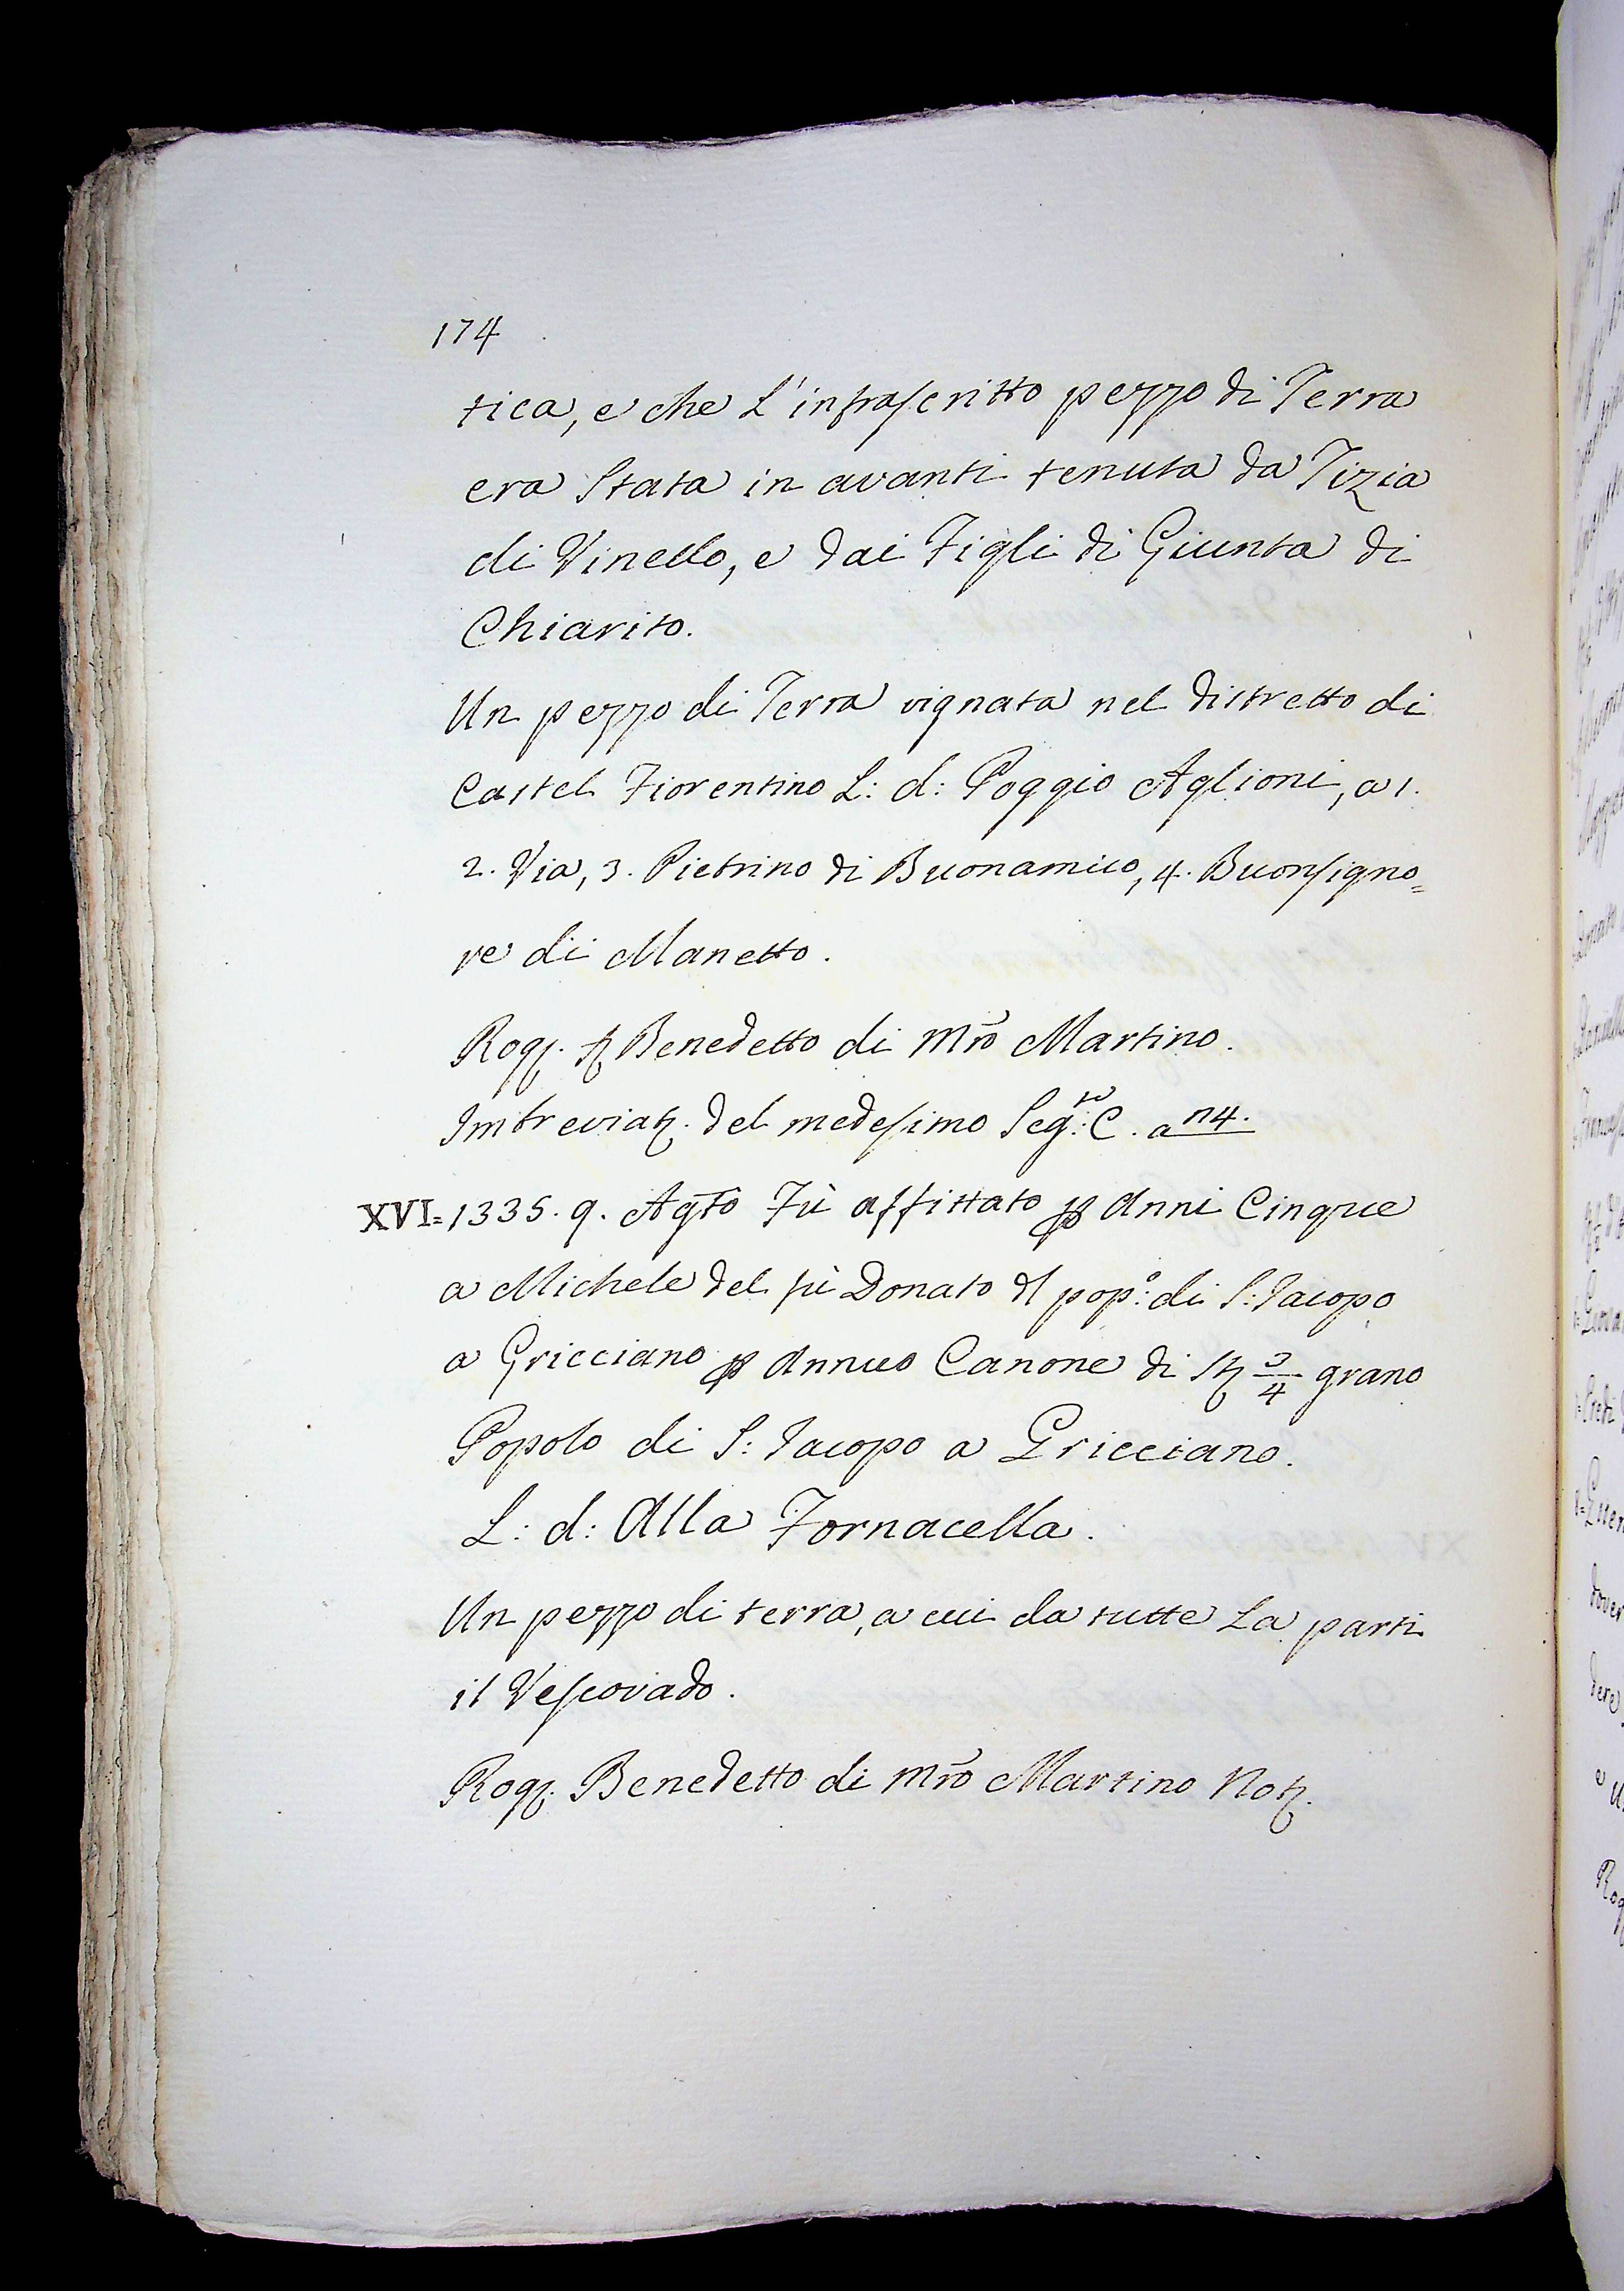 174
tica, e che L'infraſcritto pezzo di Terra
era Stata in avanti tenuta da Tizia
di Vinello, e dai Figli di Giunta di
Chiarito.
Un pezzo di Terra vignata nel distretto di
Castel Fiorentino L: d: Poggio Aglioni, a 1.
2. Via, 3. Pietrino di Buonamico, 4. Buonſigno=
re di Manetto.
Rog. Benedetto di Mr̃o Martino.
Imbreviaz. del medeſimo Seg:to C. a n4.
XVI=1335. 9. Agto Fù affittato p Anni Cinque
a Michele del fù Donato dl pop:o di S: Iacopo
a Gricciano p Annuo Canone di St 3/4 grano
Popolo di S: Iacopo a Gricciano.
L: d: Alla Fornacella.
Un pezzo di terra, a cui da tutte La parti
il Veſcovado.
Rog. Benedetto di Mr̃o Martino Not.